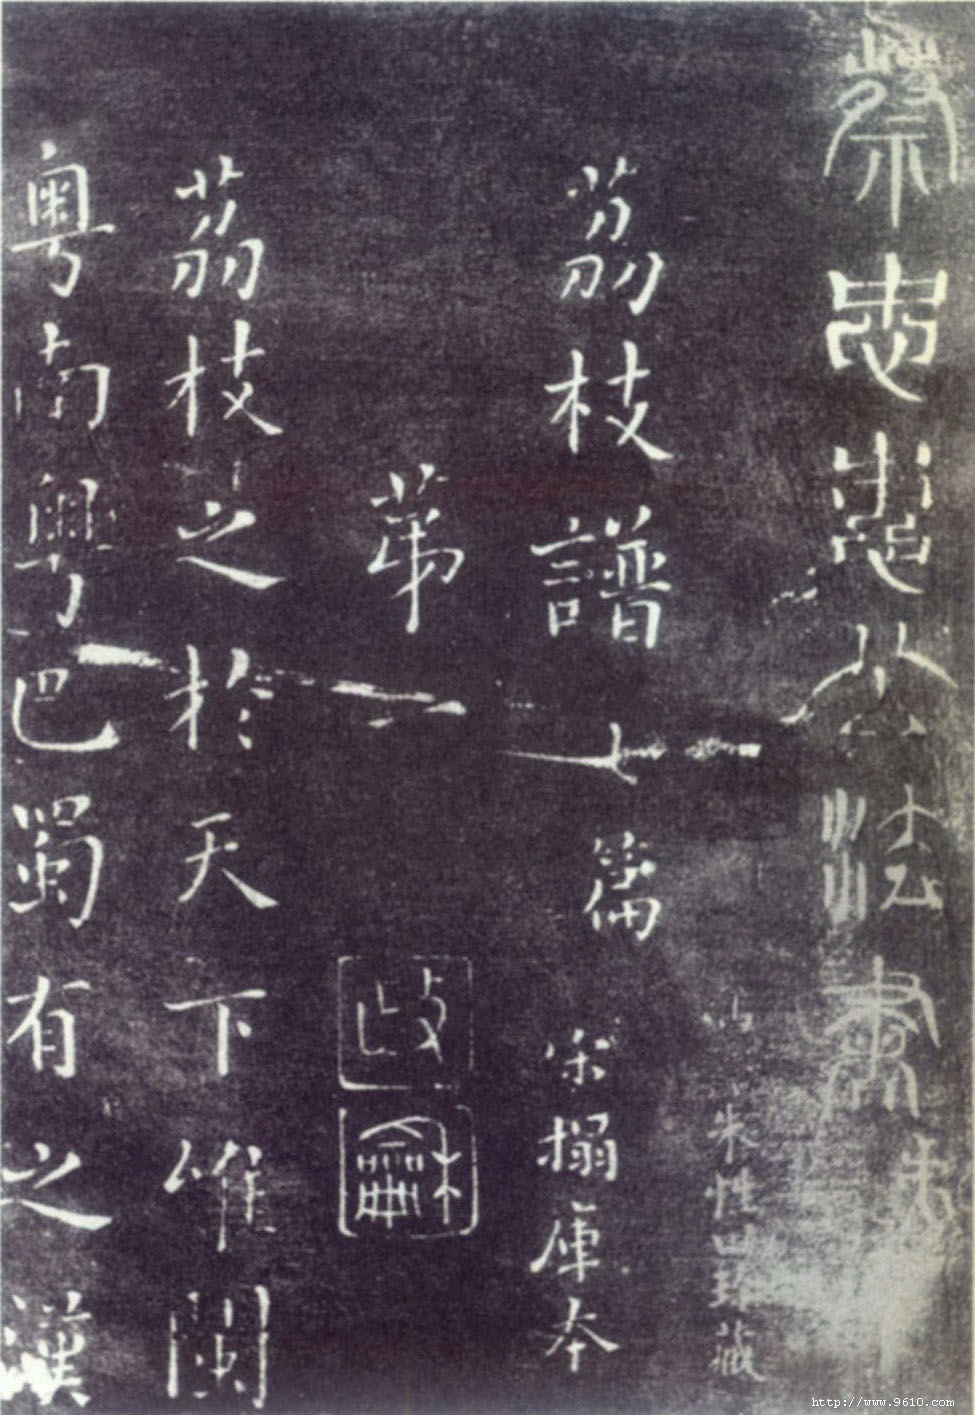 蔡忠惠公法書
朱性藏
荔枝譜七篇
宋搨庫本
苐一
政
龢
荔枝之於天下唯閩
粵南粵巴蜀有之漢
http://www.9610.com